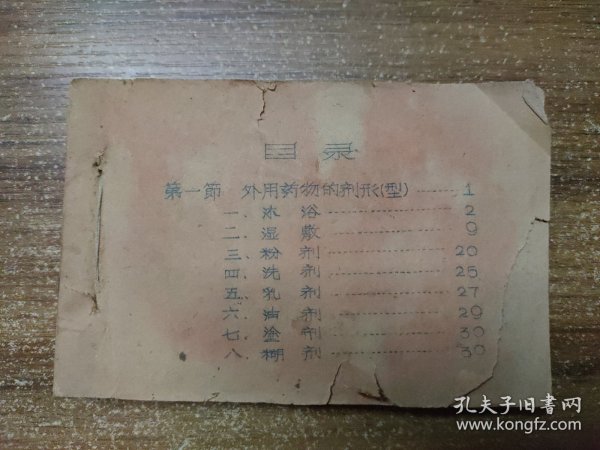 目录
第一節 外用药物的剂形(型)------1
一、沐浴------2
二、湿敷------9
三、粉剂------20
四、洗剂------25
五、乳剂------27
六、油剂------29
七、塗剂------30
八、糊剂------30
孔夫子旧书网
www.kongfz.com